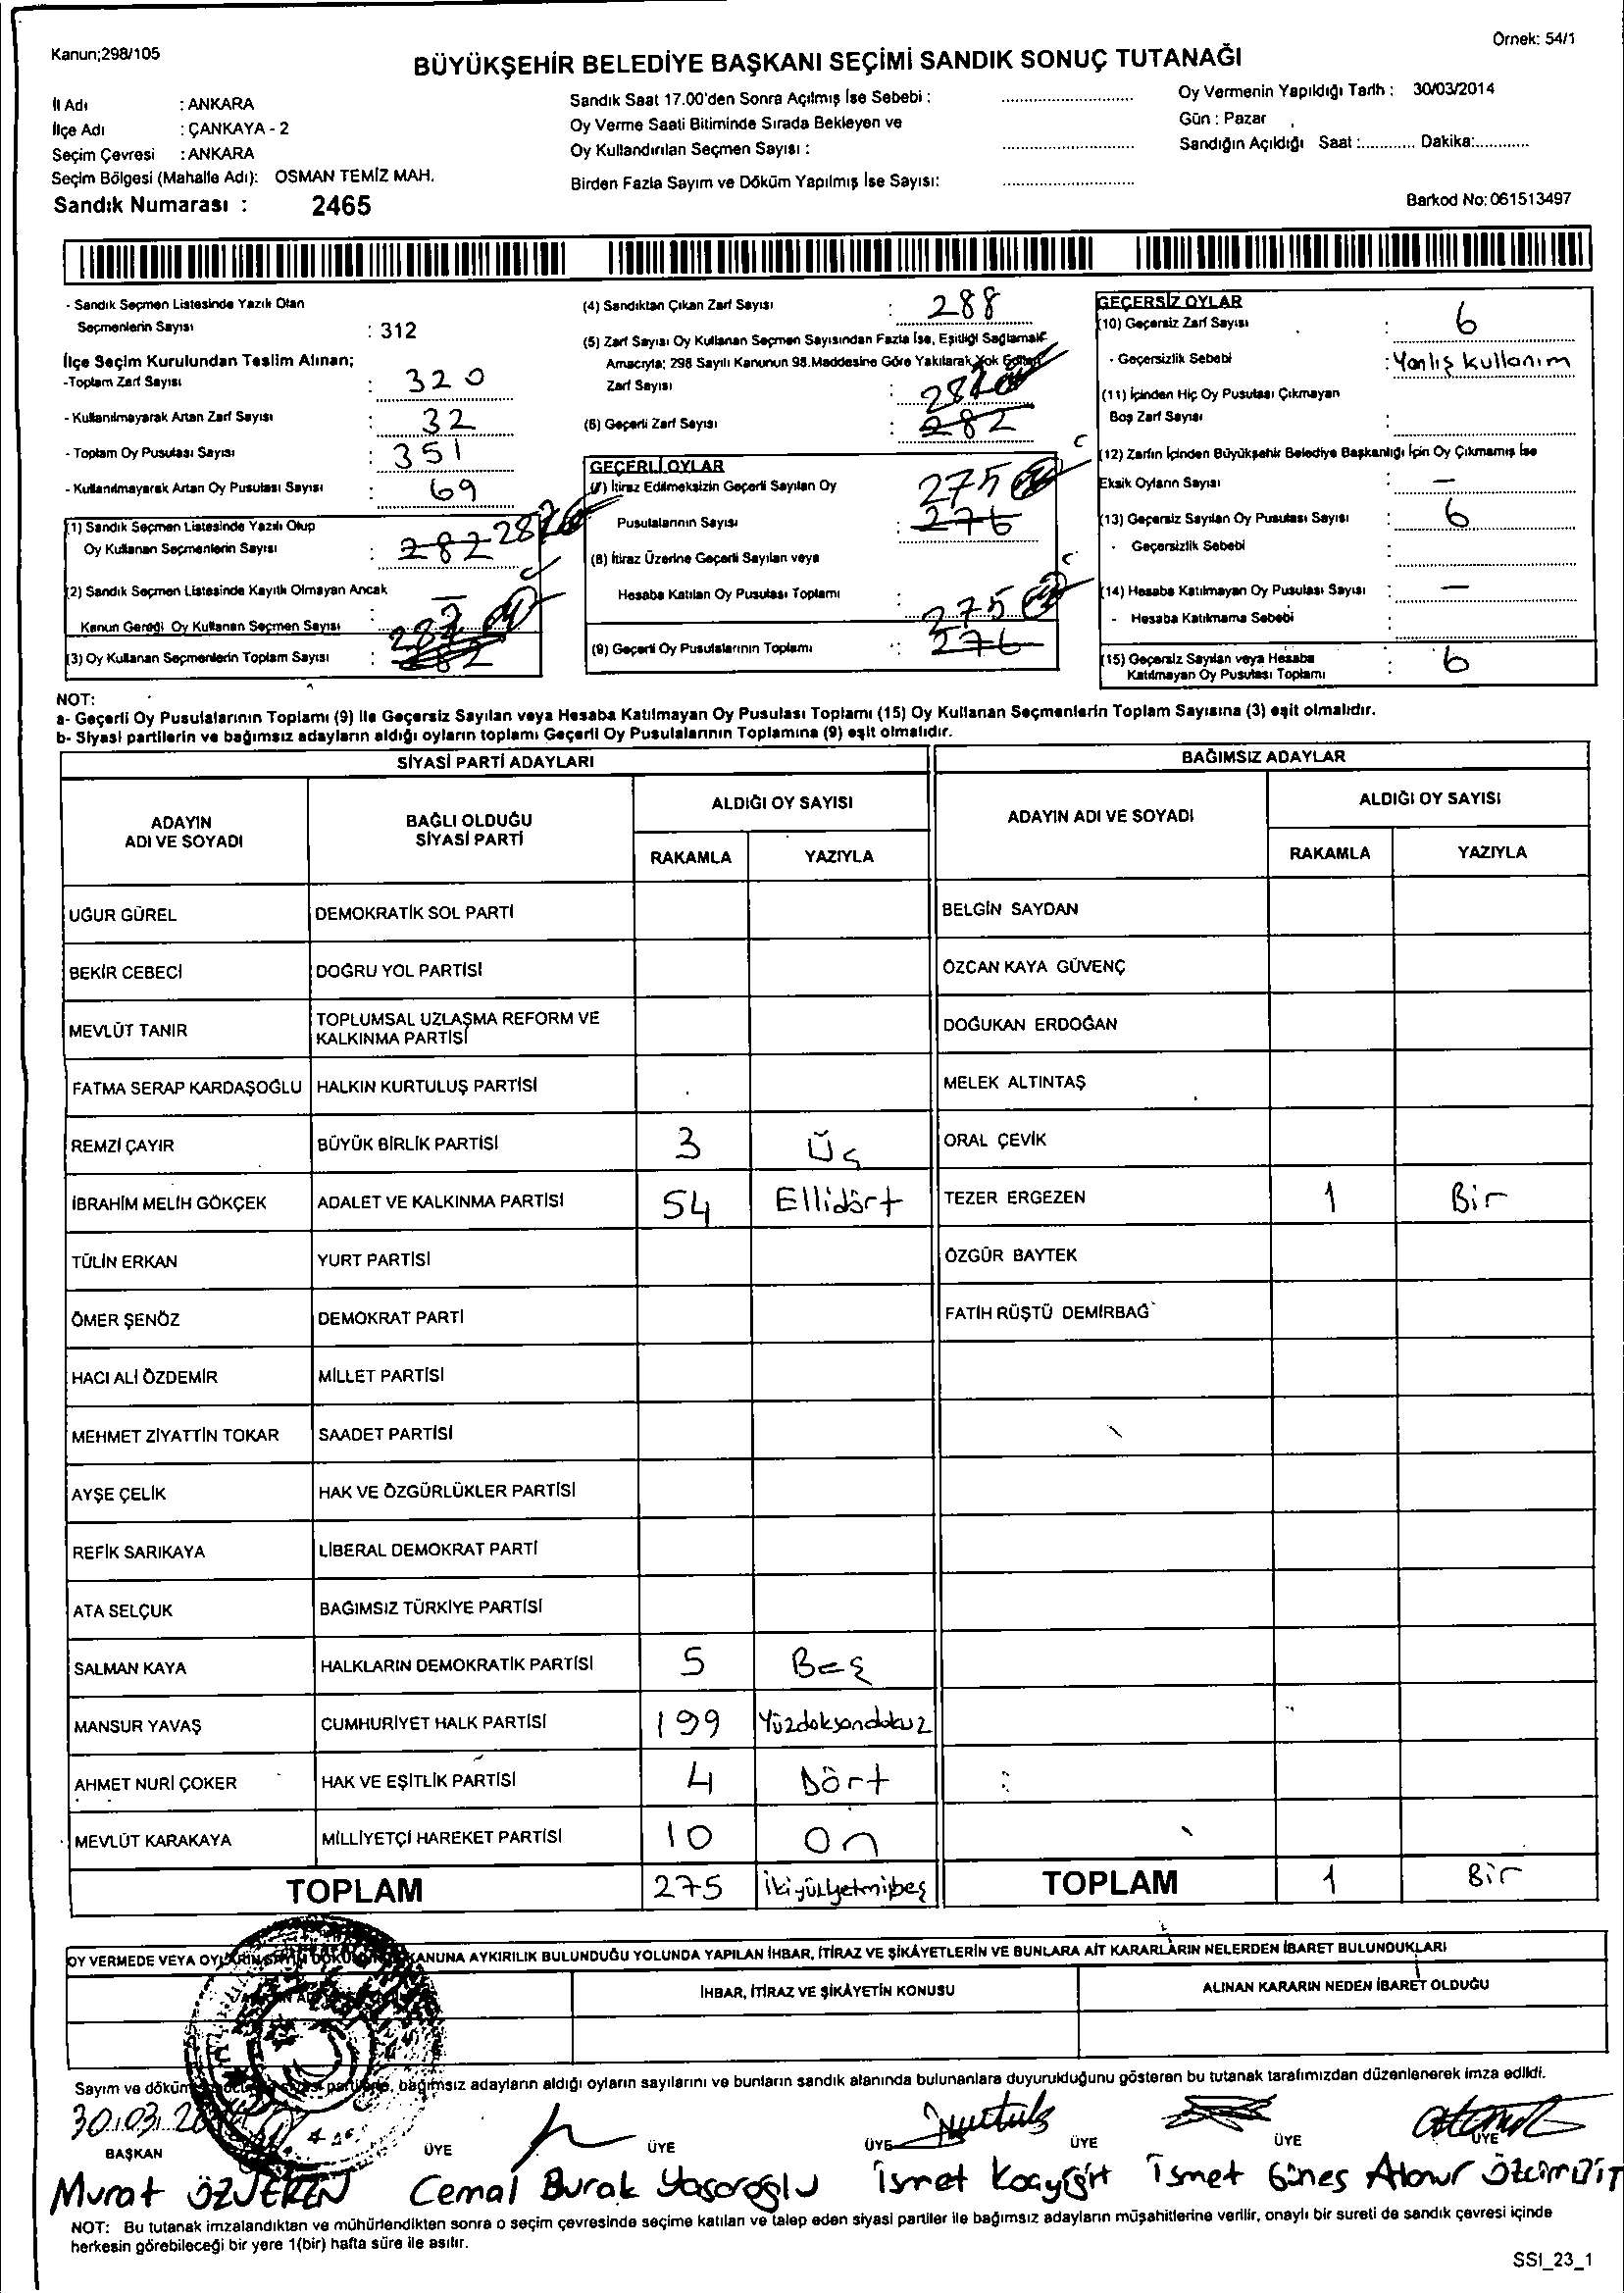 Kanun;298/105
Örnek: 54/1
BÜYÜKŞEHİR BELEDİYE BAŞKANI SEÇİMİ SANDIK SONUÇ TUTANAĞI
İl Adı : ANKARA
İlçe Adı : ÇANKAYA - 2
Seçim Çevresi : ANKARA
Seçim Bölgesi (Mahalle Adı): OSMAN TEMİZ MAH.
Sandık Numarası : 2465
Sandık Saat 17.00'den Sonra Açılmış İse Sebebi :
Oy Verme Saati Bitiminde Sırada Bekleyen ve
Oy Kullandırılan Seçmen Sayısı :
Birden Fazla Sayım ve Döküm Yapılmış İse Sayısı:
Oy Vermenin Yapıldığı Tarih : 30/03/2014
Gün : Pazar
Sandığın Açıldığı Saat :............ Dakika:............
Barkod No: 061513497
- Sandık Seçmen Listesinde Yazılı Olan
Seçmenlerin Sayısı : 312
İlçe Seçim Kurulundan Teslim Alınan;
-Toplam Zarf Sayısı : 320
- Kullanılmayarak Artan Zarf Sayısı : 32
- Toplam Oy Pusulası Sayısı : 351
- Kullanılmayarak Artan Oy Pusulası Sayısı : 69
(1) Sandık Seçmen Listesinde Yazılı Olup
Oy Kullanan Seçmenlerin Sayısı : 282
(2) Sandık Seçmen Listesinde Kayıtlı Olmayan Ancak
Kanun Gereği Oy Kullanan Seçmen Sayısı : —
(3) Oy Kullanan Seçmenlerin Toplam Sayısı :
(4) Sandıktan Çıkan Zarf Sayısı : 288
(5) Zarf Sayısı Oy Kullanan Seçmen Sayısından Fazla İse, Eşitliği Sağlamak
Amacıyla; 298 Sayılı Kanunun 98.Maddesine Göre Yakılarak Yok Edilen
Zarf Sayısı :
(6) Geçerli Zarf Sayısı : 282
GEÇERLİ OYLAR
(7) İtiraz Edilmeksizin Geçerli Sayılan Oy 275
Pusulalarının Sayısı : 276
(8) İtiraz Üzerine Geçerli Sayılan veya
Hesaba Katılan Oy Pusulası Toplamı :
275
(9) Geçerli Oy Pusulalarının Toplamı : 276
GEÇERSİZ OYLAR
(10) Geçersiz Zarf Sayısı : 6
- Geçersizlik Sebebi : Yanlış kullanım
(11) İçinden Hiç Oy Pusulası Çıkmayan
Boş Zarf Sayısı :
(12) Zarfın İçinden Büyükşehir Belediye Başkanlığı İçin Oy Çıkmamış İse
Eksik Oyların Sayısı : —
(13) Geçersiz Sayılan Oy Pusulası Sayısı : 6
- Geçersizlik Sebebi :
(14) Hesaba Katılmayan Oy Pusulası Sayısı : —
- Hesaba Katılmama Sebebi :
(15) Geçersiz Sayılan veya Hesaba
Katılmayan Oy Pusulası Toplamı : 6
NOT:
a- Geçerli Oy Pusulalarının Toplamı (9) ile Geçersiz Sayılan veya Hesaba Katılmayan Oy Pusulası Toplamı (15) Oy Kullanan Seçmenlerin Toplam Sayısına (3) eşit olmalıdır.
b- Siyasi partilerin ve bağımsız adayların aldığı oyların toplamı Geçerli Oy Pusulalarının Toplamına (9) eşit olmalıdır.
SİYASİ PARTİ ADAYLARI
ADAYIN
ADI VE SOYADI
BAĞLI OLDUĞU
SİYASİ PARTİ
ALDIĞI OY SAYISI
RAKAMLA YAZIYLA
BAĞIMSIZ ADAYLAR
ADAYIN ADI VE SOYADI
ALDIĞI OY SAYISI
RAKAMLA YAZIYLA
UĞUR GÜREL DEMOKRATİK SOL PARTİ BELGİN SAYDAN
BEKİR CEBECİ DOĞRU YOL PARTİSİ ÖZCAN KAYA GÜVENÇ
MEVLÜT TANIR TOPLUMSAL UZLAŞMA REFORM VE
KALKINMA PARTİSİ DOĞUKAN ERDOĞAN
FATMA SERAP KARDAŞOĞLU HALKIN KURTULUŞ PARTİSİ MELEK ALTINTAŞ
REMZİ ÇAYIR BÜYÜK BİRLİK PARTİSİ 3 Üç ORAL ÇEVİK
İBRAHİM MELİH GÖKÇEK ADALET VE KALKINMA PARTİSİ 54 Ellidört TEZER ERGEZEN 1 Bir
TÜLİN ERKAN YURT PARTİSİ ÖZGÜR BAYTEK
ÖMER ŞENÖZ DEMOKRAT PARTİ FATİH RÜŞTÜ DEMİRBAĞ
HACI ALİ ÖZDEMİR MİLLET PARTİSİ
MEHMET ZİYATTİN TOKAR SAADET PARTİSİ
AYŞE ÇELİK HAK VE ÖZGÜRLÜKLER PARTİSİ
REFİK SARIKAYA LİBERAL DEMOKRAT PARTİ
ATA SELÇUK BAĞIMSIZ TÜRKİYE PARTİSİ
SALMAN KAYA HALKLARIN DEMOKRATİK PARTİSİ 5 Beş
MANSUR YAVAŞ CUMHURİYET HALK PARTİSİ 199 Yüzdoksandokuz
AHMET NURİ ÇOKER HAK VE EŞİTLİK PARTİSİ 4 Dört
MEVLÜT KARAKAYA MİLLİYETÇİ HAREKET PARTİSİ 10 On
TOPLAM 275 İkiyüzyetmişbeş TOPLAM 1 Bir
OY VERMEDE VEYA KANUNA AYKIRILIK BULUNDUĞU YOLUNDA YAPILAN İHBAR, İTİRAZ VE ŞİKÂYETLERİN VE BUNLARA AİT KARARLARIN NELERDEN İBARET BULUNDUKLARI
İHBAR, İTİRAZ VE ŞİKÂYETİN KONUSU
ALINAN KARARIN NEDEN İBARET OLDUĞU
Sayım ve bağımsız adayların aldığı oyların sayılarını ve bunların sandık alanında bulunanlara duyurulduğunu gösteren bu tutanak tarafımızdan düzenlenerek imza edildi.
30.03.
BAŞKAN ÜYE ÜYE ÜYE ÜYE ÜYE ÜYE
Murat ÖZVEREN Cemal Burak Yaşaroğlu İsmet Koçyiğit İsmet Güneş
NOT: Bu tutanak imzalandıktan ve mühürlendikten sonra o seçim çevresinde seçime katılan ve talep eden siyasi partiler ile bağımsız adayların müşahitlerine verilir, onaylı bir sureti de sandık çevresi içinde
herkesin görebileceği bir yere 1(bir) hafta süre ile asılır.
SSI_23_1